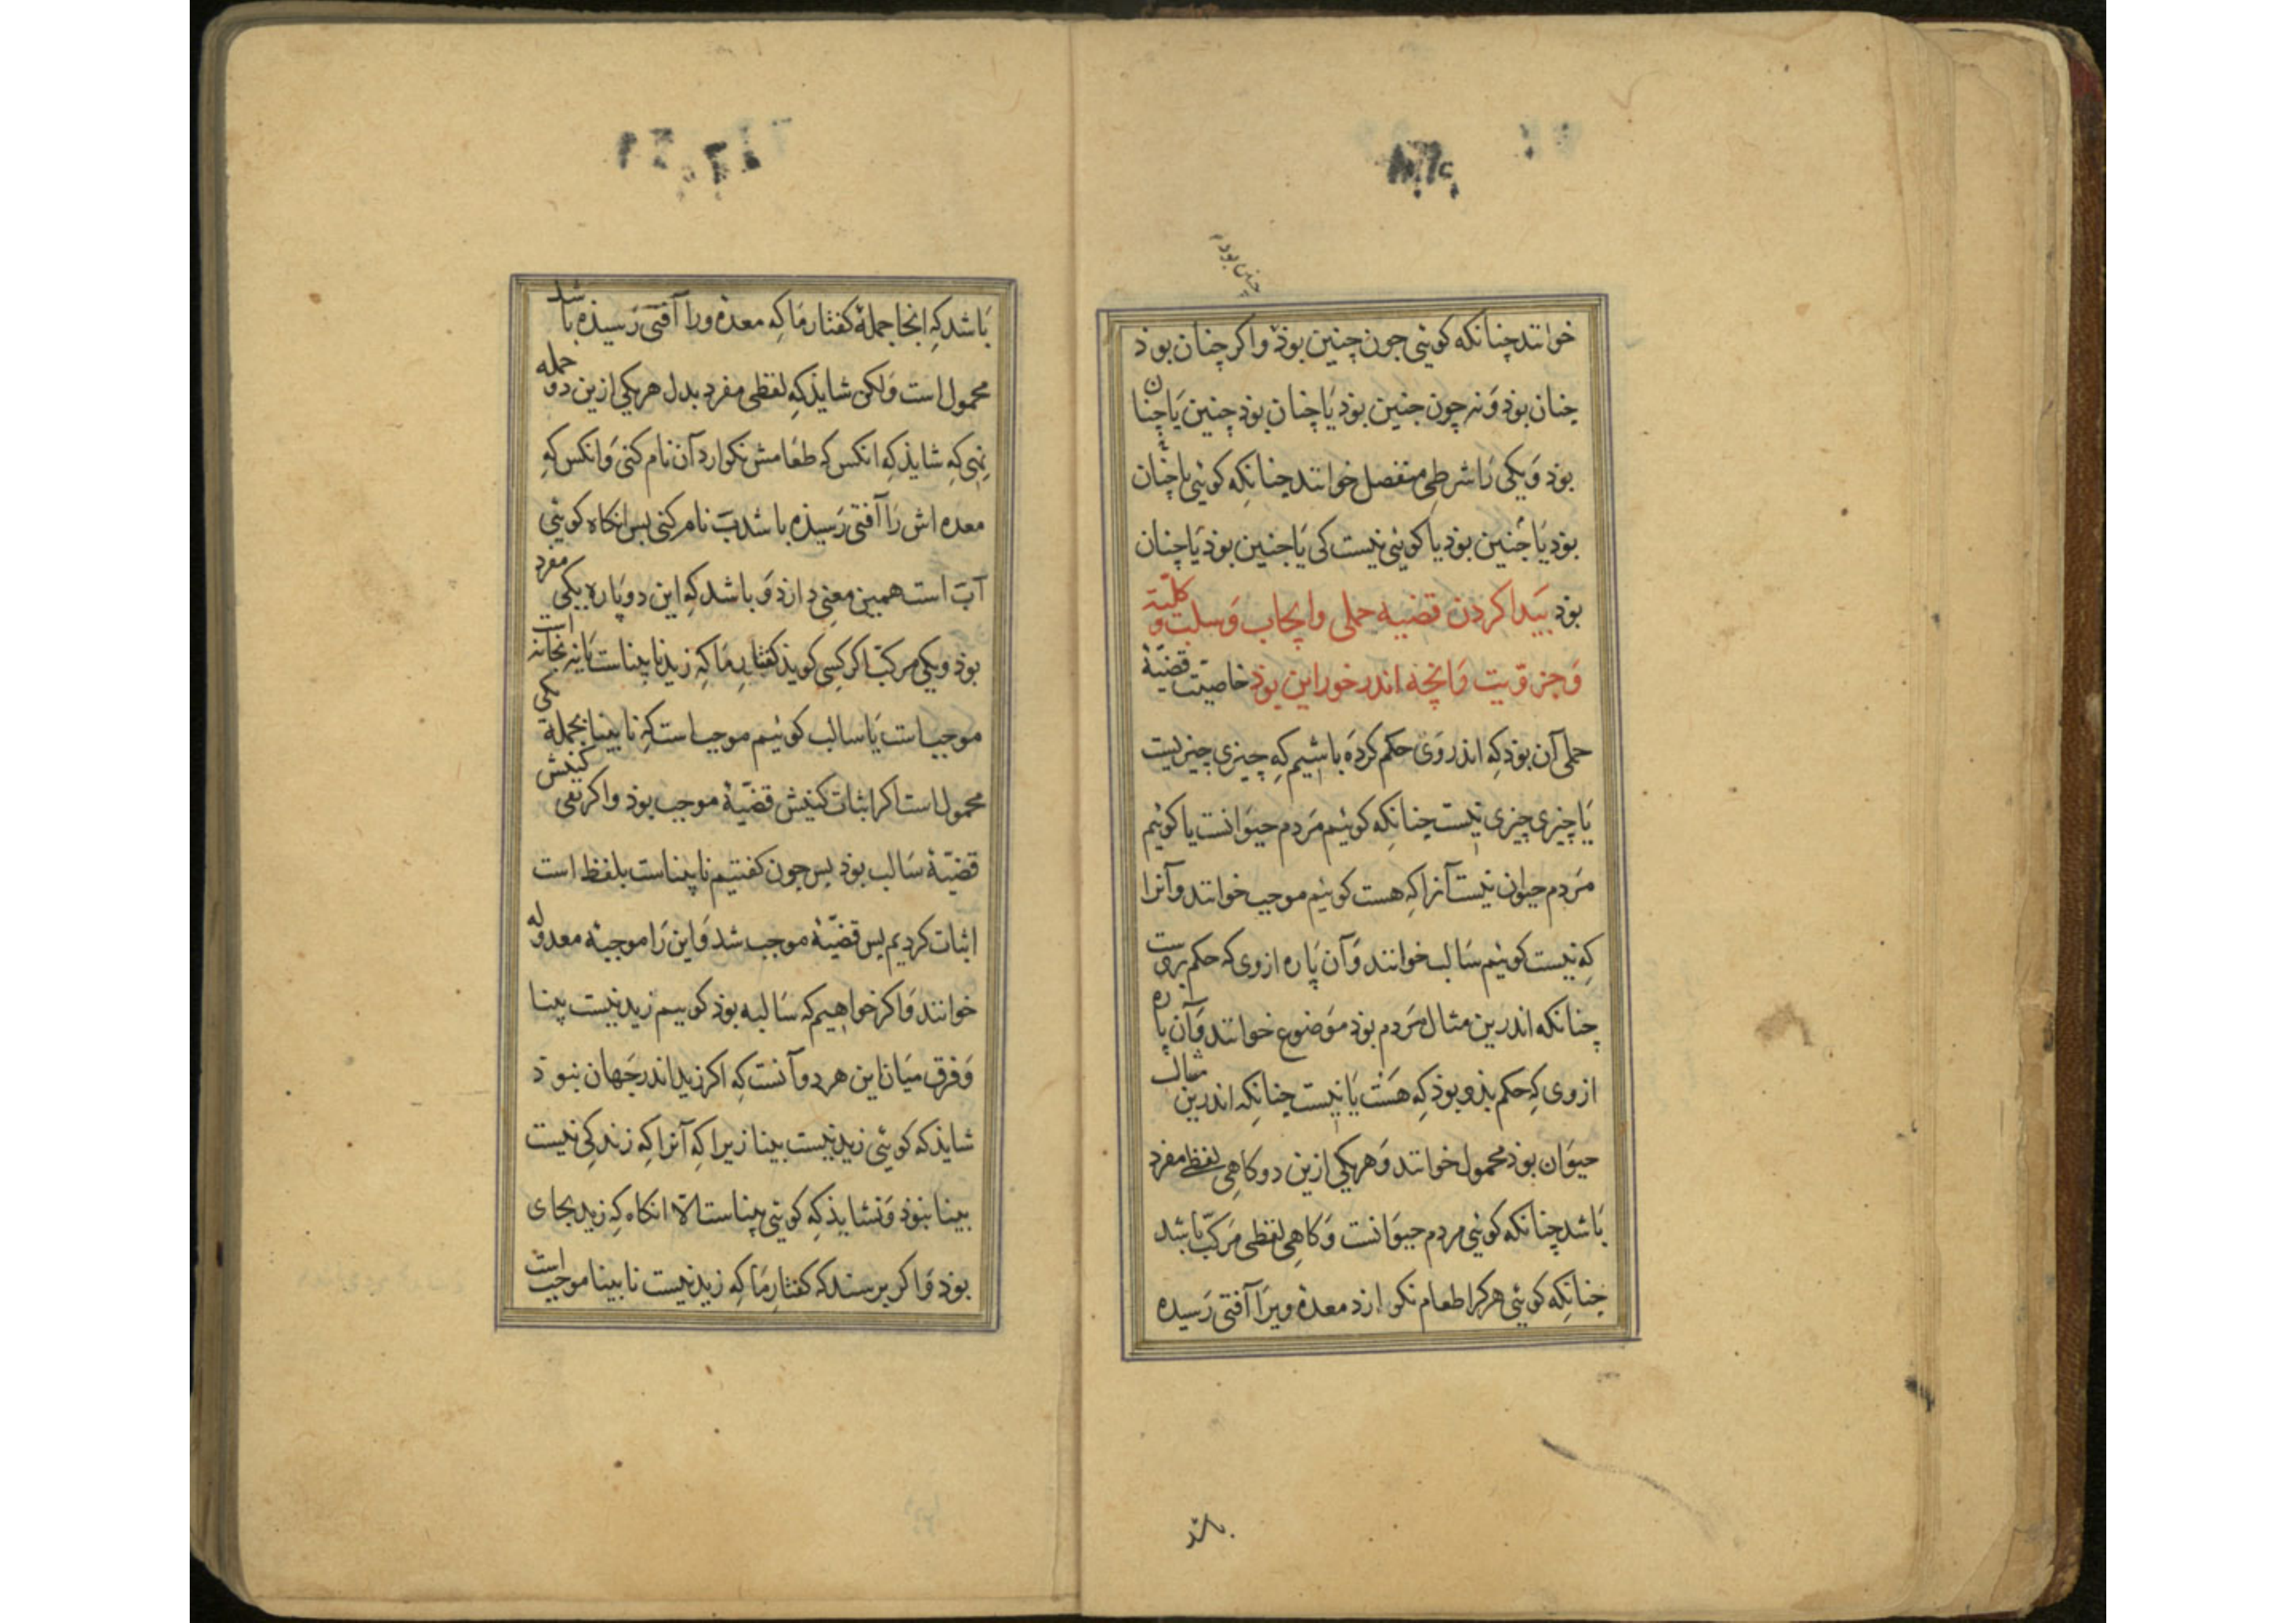 چنین بود م
خوانند چنانکه کوئی جون چنین بوذ واکر چنان بوذ
چنان بوذ وَنه چون جنین بوذ یَا چنان بوذ چنین یَا چنان
بوذ وَیکی رَا شرطی منفصل خوانند چنانکه کوئی یا چنان
بوذ یَا چنین بوذ یا کوئی نیست کی یَا جنین بوذ یَا چنان
بوذ پَیدا کردن قضیه حملی وایجاب وَسلب وکلّیّة
وَجزویّت وَانچه اندر خور این بوذ خاصیّت قضیّهٔ
حملی آن بوذ کِه اندر وَی حکم کردَه باشیم کِه چیزی چیزیست
یَا چیزی چیزی نیست چنانکه کوئیم مَردم حیوَانست یا کوئیم
مَردم حیوان نیست آنرا کِه هست کوئیم موجب خوانند وآنرا
کِه نیست کوئیم سَالب خوانند وَآن پَاره ازوی که حکم بریست
چنانکه اندرین مثال مَردم بوذ مَوضوع خوانند وَآن پاره
ازوی کِه حکم بذو بوذ کِه هَست یَا نیست چنانکه اندرین مثال
حیوَان بوذ محمول خوانند وَهریکی ازین دو کاهِی لفظی مفرد
بَاشد چنانکه کوئی مردم حیوَانست وَکاهِی لفظی مَرکّب باشد
چنانکِه کوئی هرکرا طعام نکوارذ معدهٔ ویرَا آفتی رَسیده
باشد
بَاشد کِه اینجا جملهٔ کفتار مَا کِه معدهٔ ورا آفتی رَسیذه باشد
محمول است وَلکن شایذ کِه لفظی مفرد بدل هریکی ازین دو جمله
بنهی کِه شایذ کِه انکس که طعَامش نکوارد آن نام کنی وَانکس کِه
معده اش رَا آفتی رَسیذه باشد بَ نام کنی پس انکاه کوئی
آ بَ است همین معنی دارذ وَباشد کِه این دو پَاره یکی مفرد
بوذ ویکی مرکّب اکر کسِی کویذ کفتارِ مَا کِه زید نابیناست یا نه بخانه است
موجب است یَا سالب کوئیم موجب است کِه نابینا بجملة یکی
محمول است اکر اثبات کنیش قضیّهٔ موجب بوذ واکر نفی کنیش
قضیّهٔ سَالب بوذ پس جون کفتیم نابیناست بلفظ است
اثبات کردیم پس قضیّهٔ موجب شد وَاین رَا موجبهٔ معدوله
خوانند وَاکر خواهیم که سَالبه بوذ کوییم زید نیست بینا
وَفرق میَان این هر دو آنست کِه اکر زید اندر جَهان نبوذ
شایذ که کوئی زید نیست بینا زیرا کِه آنرا کِه زندکِی نیست
بینا نبوذ وَنشایذ کِه کوئی بیناست الّا انکاه کِه زید بجای
بوذ وَاکر پرسند که کفتارِ مَا کِه زید نیست نابینا موجب است